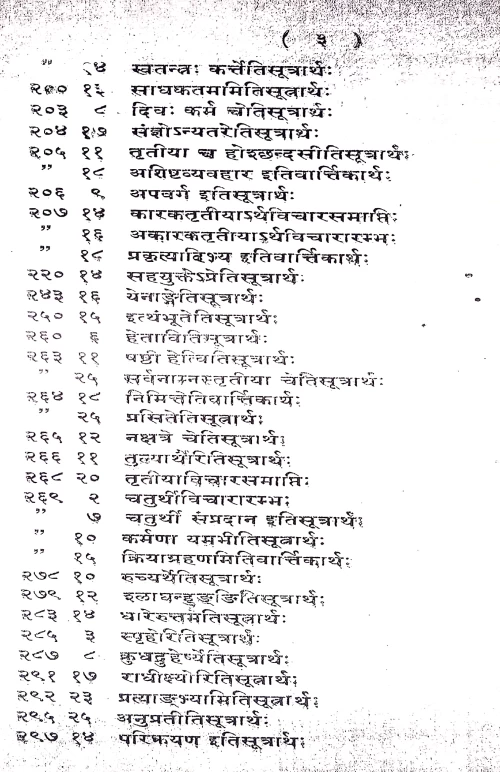 ( ३ )
” १४ स्वतन्त्रः कर्त्तेतिसूत्रार्थः
२०० १३ साधकतममितिसूत्रार्थः
२०३ ८ दिवः कर्म चेतिसूत्रार्थः
२०४ १७ संज्ञोऽन्यतरेतिसूत्रार्थः
२०५ ११ तृतीया च होश्छन्दसीतिसूत्रार्थः
” १८ अशिष्टव्यवहार इतिवार्त्तिकार्थः
२०६ ९ अपवर्ग इतिसूत्रार्थः
२०७ १४ कारकतृतीयाऽर्थविचारसमाप्तिः
” १६ अकारकतृतीयाऽर्थविचारारम्भः
” १८ प्रकृत्यादिभ्य इतिवार्त्तिकार्थः
२२० १४ सहयुक्तेऽप्रेतिसूत्रार्थः
२४३ १६ येनाङ्गेतिसूत्रार्थः
२५० १५ इत्थंभूतेतिसूत्रार्थः
२६० ६ हेतावितिसूत्रार्थः
२६३ ११ षष्ठी हेत्वितिसूत्रार्थः
” २५ सर्वनाम्नस्तृतीया चेतिसूत्रार्थः
२६४ १८ निमित्तेतिवार्त्तिकार्थः
” २५ प्रसितेतिसूत्रार्थः
२६५ १२ नक्षत्रे चेतिसूत्रार्थः
२६६ ११ तुल्यार्थैरितिसूत्रार्थः
२६८ २० तृतीयाविचारसमाप्तिः
२६९ २ चतुर्थीविचारारम्भः
” ७ चतुर्थी संप्रदान इतिसूत्रार्थः
” १० कर्मणा यमभीतिसूत्रार्थः
” १५ क्रियाग्रहणमितिवार्त्तिकार्थः
२७८ १० रुच्यर्थेतिसूत्रार्थः
२७९ १२ श्लाघन्हुङ्ङितिसूत्रार्थः
२८३ १४ धारेरुत्तमेतिसूत्रार्थः
२८५ ३ स्पृहेरितिसूत्रार्थः
२८७ ८ क्रुधद्रुहेर्ष्येतिसूत्रार्थः
२९१ १७ राधीक्ष्योरितिसूत्रार्थः
२९२ २३ प्रत्याङ्भ्यामितिसूत्रार्थः
२९५ २५ अनुप्रतीतिसूत्रार्थः
२९७ १४ परिक्रयण इतिसूत्रार्थः